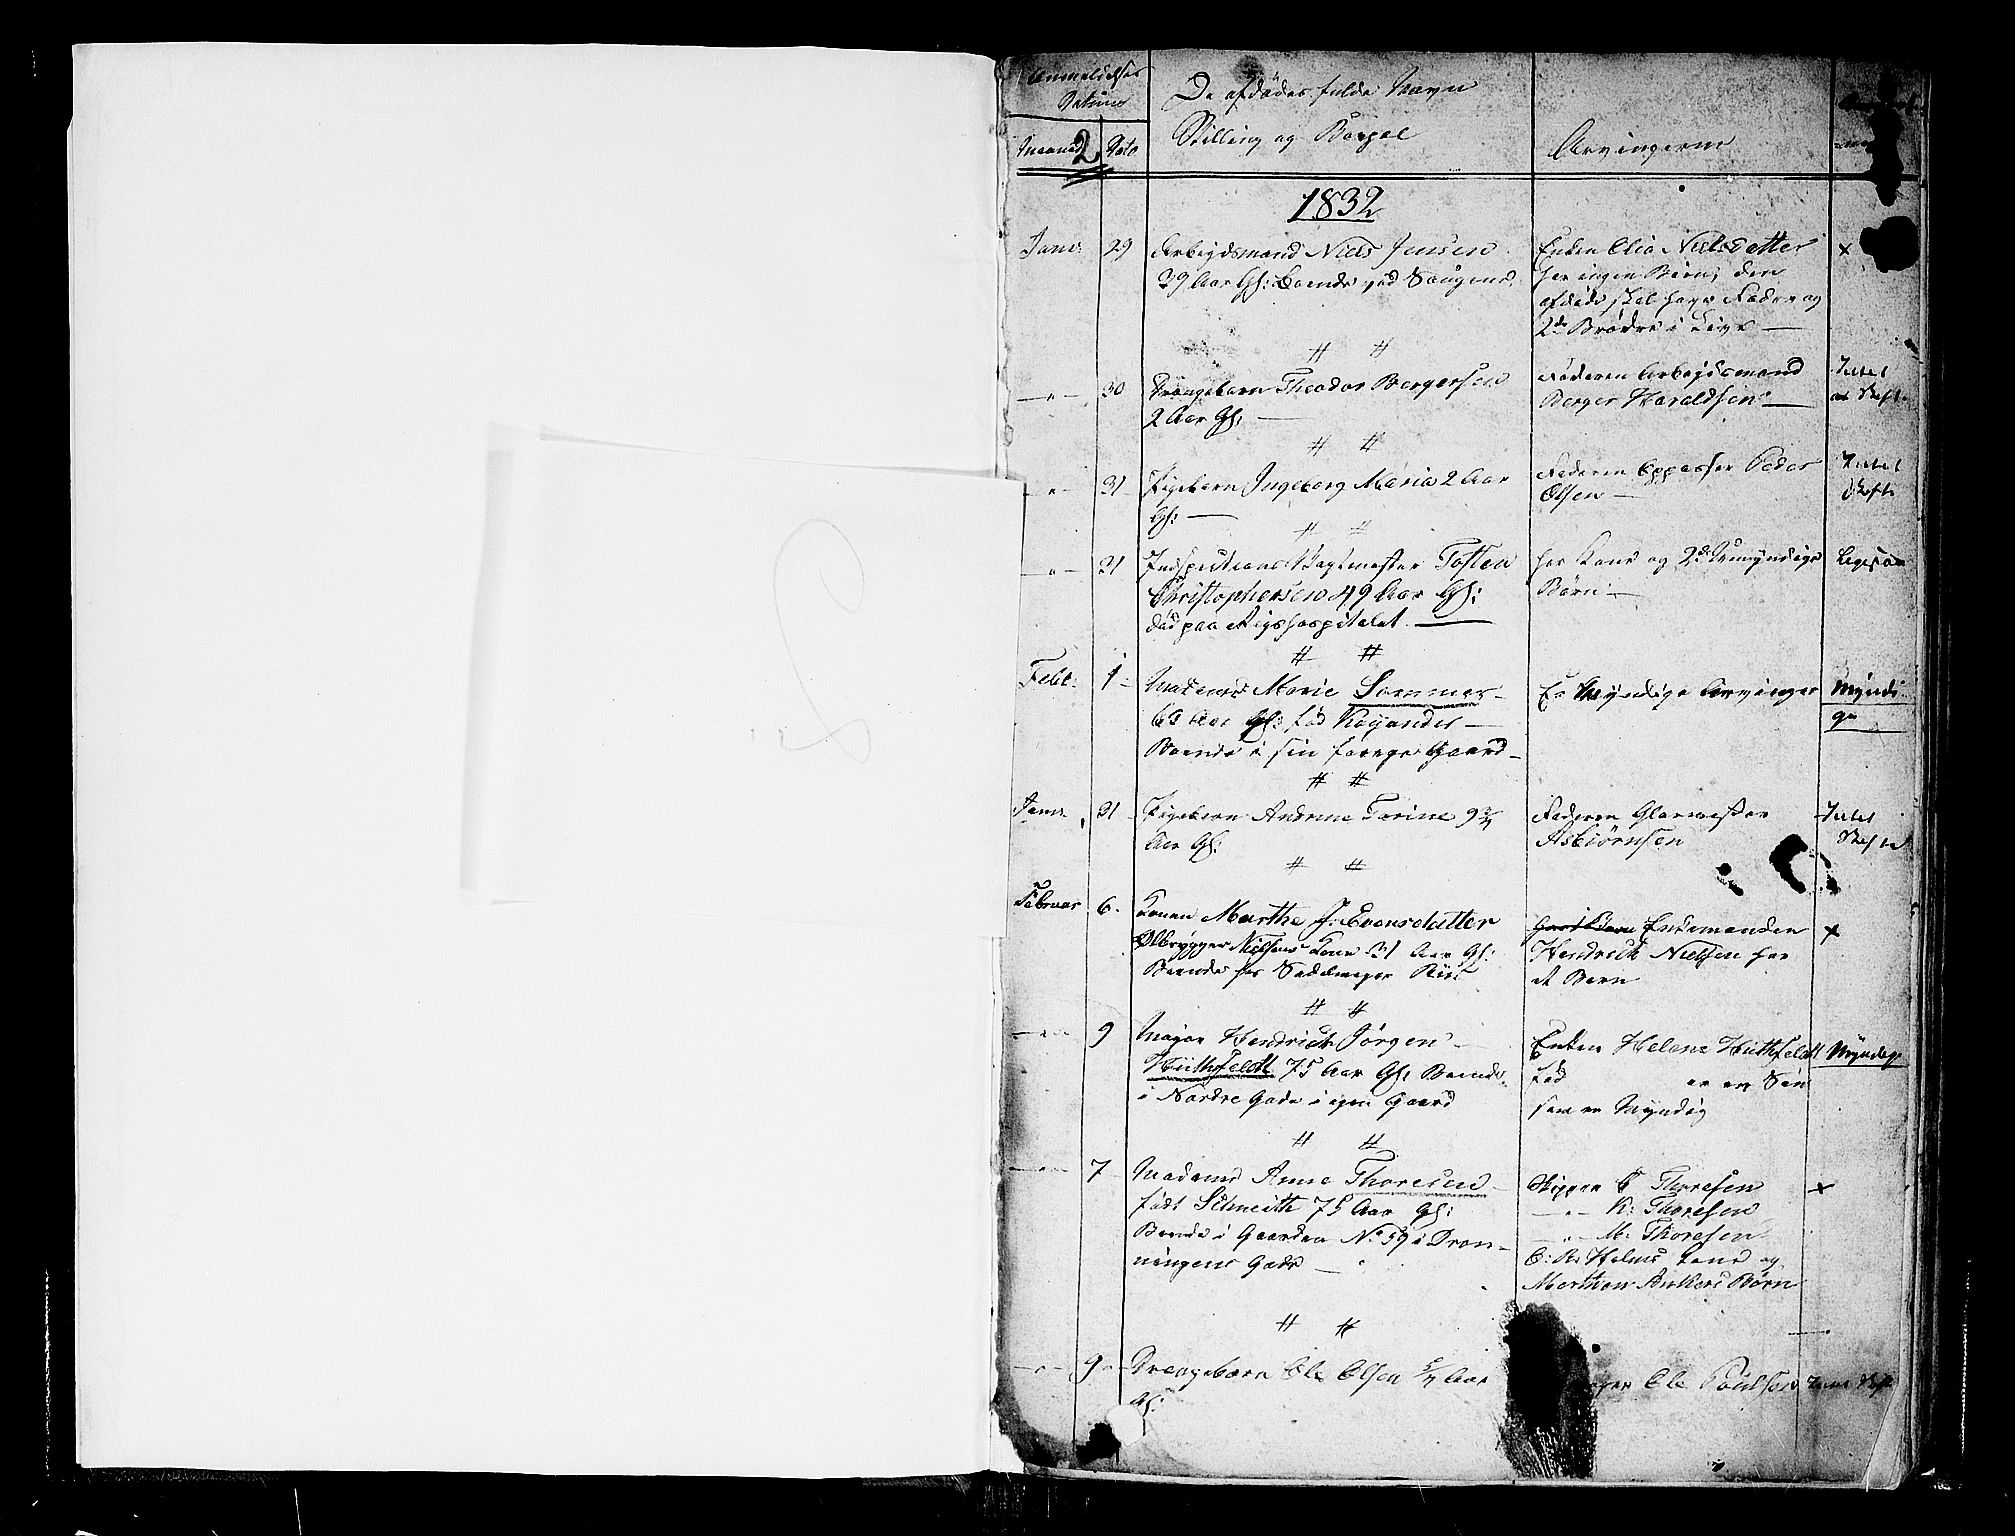 Anmeldelses
Datum
De afdødes fulde Navn
Stilling og Bopæl
Arvingerne
Maaned
2
Dato
1832
Janr
29
Arbeydsmand Niels Jensen
39 Aar Gl: boende ved Saugene
Enken Elia Nielsdatter
har ingen Børn, den
afdøde skal have Fader og
2de Brødre i Live —
x
# #
— " —
30
Drengebarn Theodor Bergersen
2 Aar Gl: —
Faderen Arbeydsmand
Berger Haraldsen —
Intet
at Skifte
# #
— " —
31
Pigebarn Ingeborg Maria 2 Aar
Gl: —
Faderen Oppasser Peder
Olsen —
Intet
Skifte
# #
— " —
31
Inspections Vagtmester Tosten
Christophersen 49 Aar Gl:
død paa Rigshospitalet. —
har Kone og 2de Umyndige
Børn —
# #
Febr:
1
Madame Marie Sommer
Aar Gl: fød
Boende i sin Gaard —
Er Myndige Arvinger
Myndi-
ge
# #
Janr
31
Pigebarn Andrine Torine 9 3/4
Aar Gl:
Faderen Glarmester
Asbiørnsen
Intet
Skifte
# #
Februar
6.
Konen Marthe J: Evensdatter
Ølbrygger Nielsens Kone 31 Aar Gl:
Boende hos Sadelmager
Enkemanden
Hendrich Nielsen har
et Barn
x
# #
— " —
9
Major Hendrich Jørgen
Hüthfeldt 75 Aar Gl: Boende
i Nordre Gade i egen Gaard
Enken Helene Hüthfeldt
fød er en Søn
som er Myndig
Myndig
# #
— " —
7
Madame Anne Thoresen
født Schmeith 75 Aar Gl:
Boende i Gaarden No 59 i Dron-
ningens Gade —
Skipper C Thoresen
— " — K: Thoresen
— " — M: Thoresen
C: R: Holms Kone og
Morthen Ankers Børn
x
# #
— " —
9
Drengebarn Ole Olsen 5/4 Aar
Gl:
Ole Poulsen
Intet Skifte